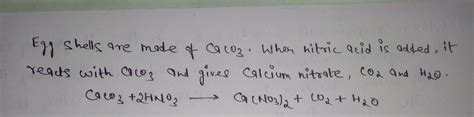 Egg shells are made of CaCO3. When nitric acid is added, it
reacts with CaCO3 and gives Calcium nitrate, CO2 and H2O.
CaCO3 + 2HNO3 ⟶ Ca(NO3)2 + CO2 + H2O